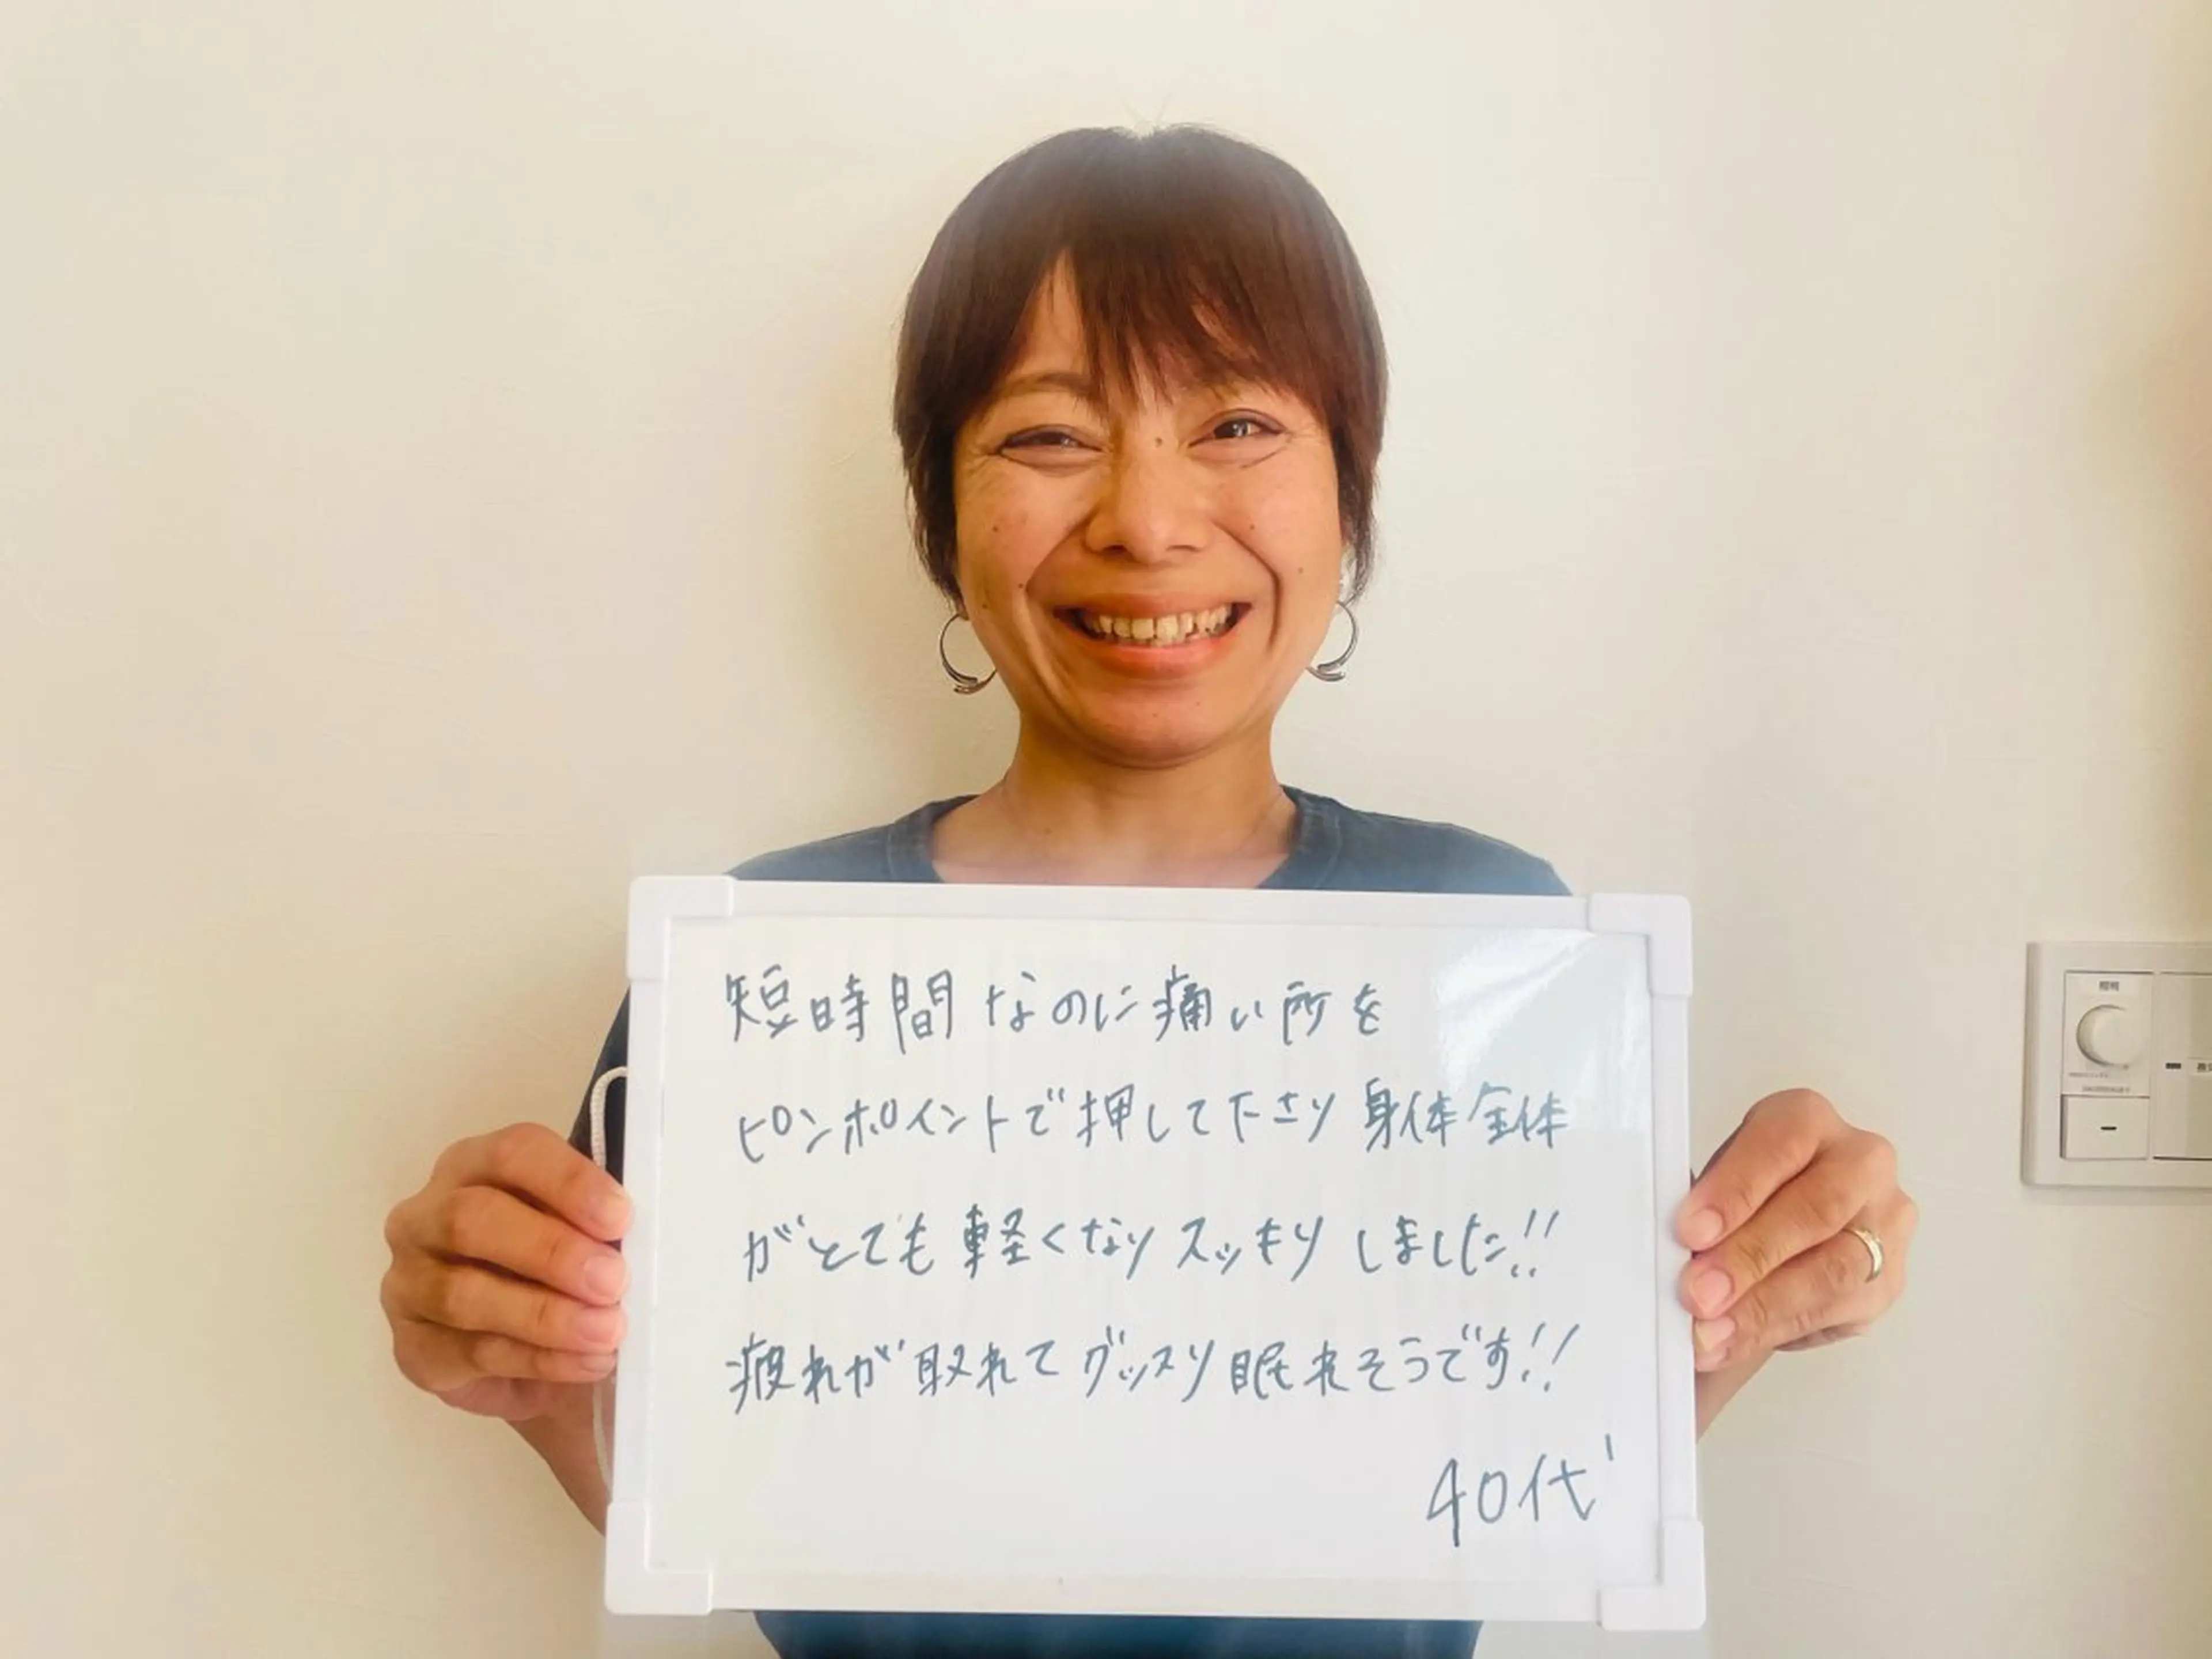 短時間なのに痛い所を
ピンポイントで押して下さり身体全体
がとても軽くなりスッキリしました!!
疲れが取れてグッスリ眠れそうです!!
40代
照明